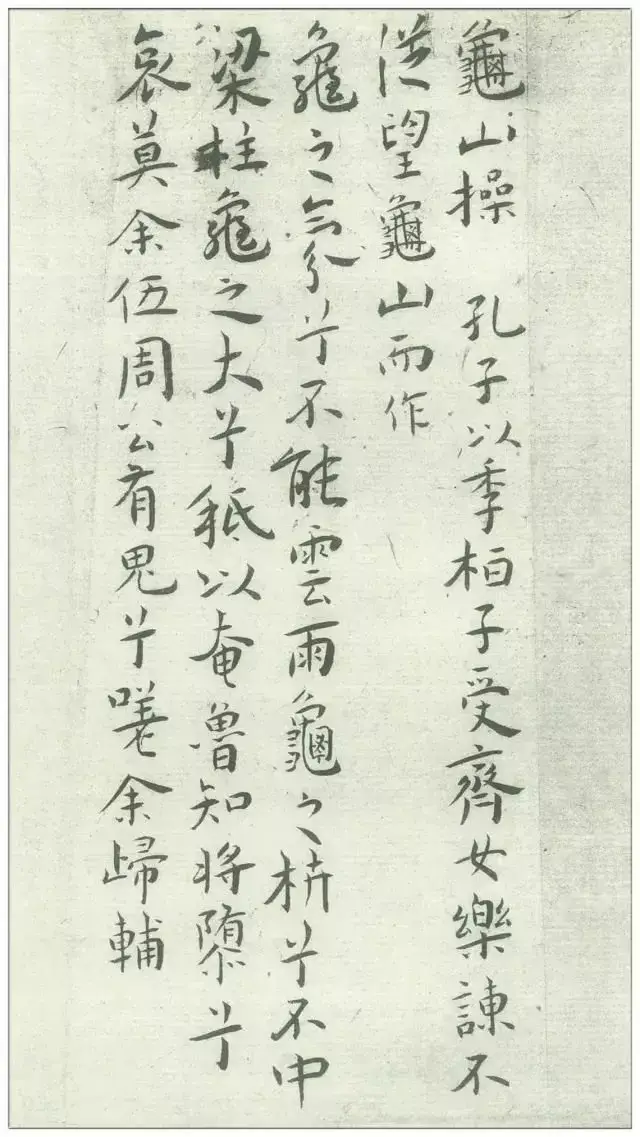 龜山操 孔子以季桓子受齊女樂諫不
從望龜山而作
龜之氛兮不能雲雨龜之枿兮不中
梁柱龜之大兮秖以奄魯知将隳兮
哀莫余伍周公有鬼兮嗟余歸輔